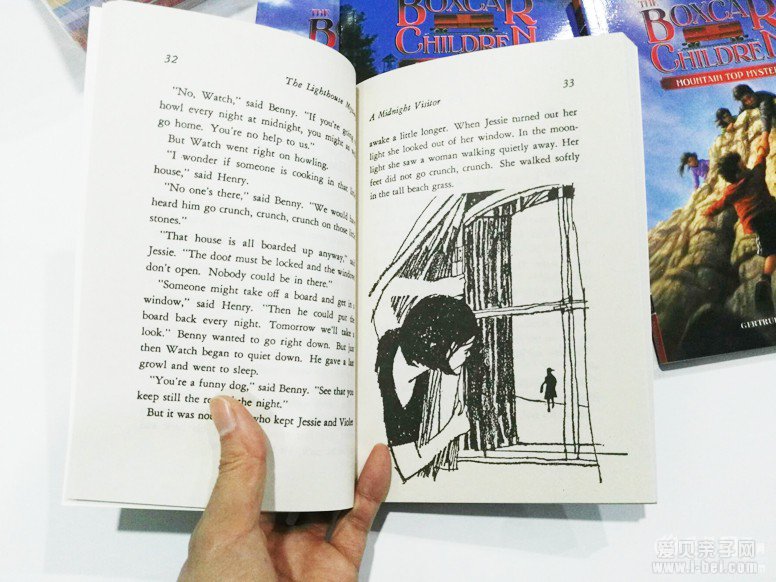 THE
BOXCAR
CHILDREN
THE
BOXCAR
CHILDREN
MOUNTAIN TOP MYSTE
GERTRU
32
The Lighthouse My
"No, Watch," said Benny. "If you're going
howl every night at midnight, you might as we
go home. You're no help to us."
But Watch went right on howling.
"I wonder if someone is cooking in that li
house," said Henry.
"No one's there," said Benny. "We would ha
heard him go crunch, crunch, crunch on those litt
stones."
"That house is all boarded up anyway," sa
Jessie. "The door must be locked and the window
don't open. Nobody could be in there."
"Someone might take off a board and get i
window," said Henry. "Then he could put the
board back every night. Tomorrow we'll take a
look." Benny wanted to go right down. But just
then Watch began to quiet down. He gave a last
growl and went to sleep.
"You're a funny dog," said Benny. "See that you
keep still the re the night."
But it was no who kept Jessie and Violet
33
A Midnight Visitor
awake a little longer. When Jessie turned out her
light she looked out of her window. In the moon-
light she saw a woman walking quietly away. Her
feet did not go crunch, crunch. She walked softly
in the tall beach grass.
爱贝亲子网
www.i-bei.com